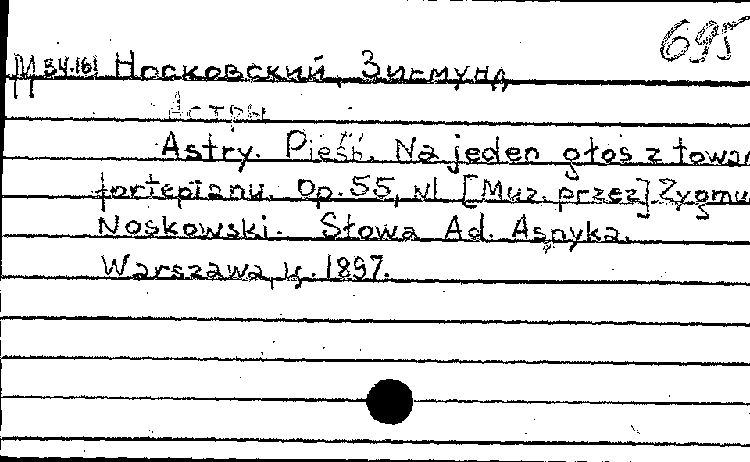 695
М 34.161 Носковский, Зигмунд
Астры
Astry. Pieśń. Na jeden głos z towar
fortepianu. Op. 55, №1 [Muz. przez] Zygmu
Noskowski. Słowa Ad. Asnyka.
Warszawa, ц. 1897.